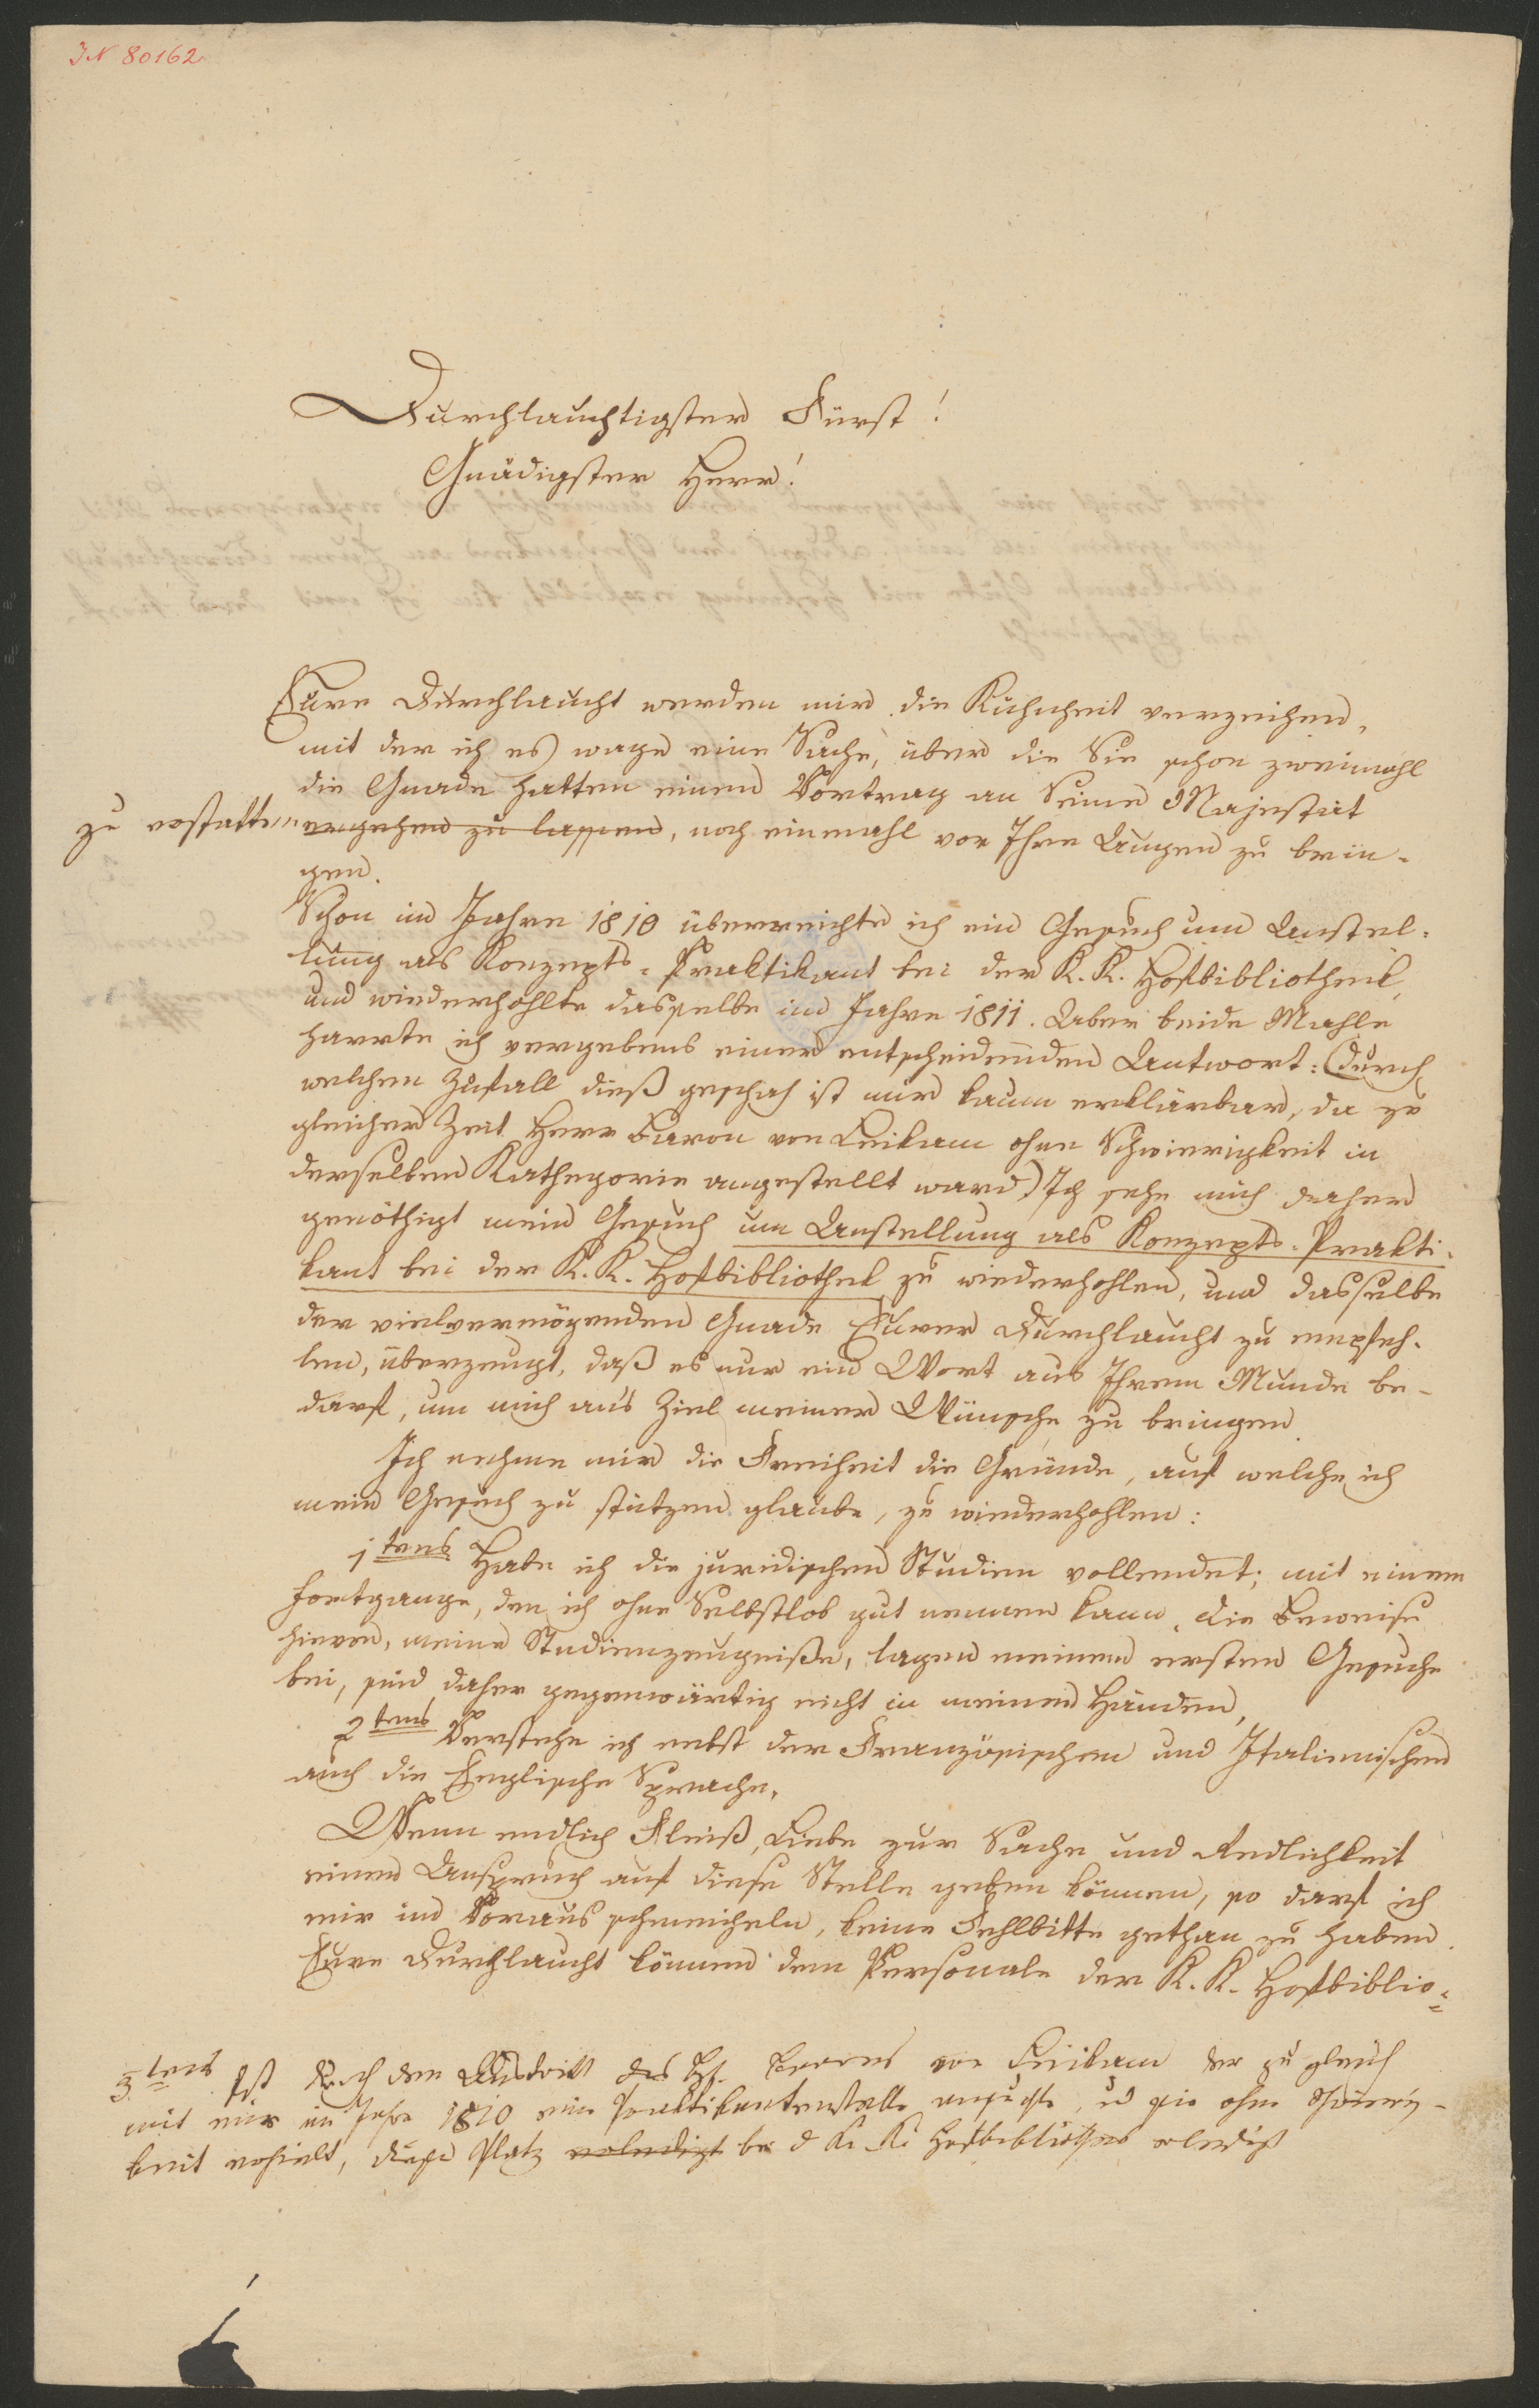 IN 80162
Durchlauchtigster Fürst!
Gnädigster Herr!
Eure Durchlaucht werden mir die Kühnheit verzeihen,
mit der ich es wage eine Sache, über die Sie schon zweimahl
die Gnade hatten einen Vortrag an Seine Majestät
zu erstatten ergehen zu lassen, noch einmahl vor Ihre Augen zu brin-
gen.
Schon im Jahre 1810 überreichte ich ein Gesuch um Anstel-
lung als Konzepts-Praktikant bei der K. K. Hofbibliothek,
und wiederhohlte dasselbe im Jahre 1811. Aber beide Mahle
harrte ich vergebens einer entscheidenden Antwort: (durch
welchen Zufall dieß geschah ist mir kaum erklärbar, da zu
gleicher Zeit Herr Baron von Leikam ohne Schwierigkeit in
derselben Kathegorie angestellt ward) Ich sehe mich daher
genöthigt mein Gesuch um Anstellung als Konzepts-Prakti-
kant bei der K. K. Hofbibliothek zu wiederhohlen, und dasselbe
der vielvermögenden Gnade Eurer Durchlaucht zu empfeh-
len, überzeugt, daß es nur ein Wort aus Ihrem Munde be-
darf, um mich ans Ziel meiner Wünsche zu bringen.
Ich nehme mir die Freiheit die Gründe, auf welche ich
mein Gesuch zu stützen glaube, zu wiederhohlen:
1tens Habe ich die juridischen Studien vollendet; mit einem
Fortgange, den ich ohne Selbstlob gut nennen kann. Die Beweise
hievon, meine Studienzeugniße, lagen meinem ersten Gesuche
bei, sind daher gegenwärtig nicht in meinen Händen,
2tens Verstehe ich nebst der Französischen und Italienischen
auch die Englische Sprache.
Wenn endlich Fleiß, Liebe zur Sache und Redlichkeit
einen Anspruch auf diese Stelle geben können, so darf ich
mir im Voraus schmeicheln, keine Fehlbitte gethan zu haben.
Eure Durchlaucht können dem Personale der K. K. Hofbiblio-
3tens Ist durch den Austritt des H. Barons von Leikam der zu gleich
mit mir im Jahre 1810 eine Praktikantenstelle ansuchte, u sie ohne Schwierig-
keit erhielt, dieser Platz erledigt bei d K. K. Hofbibliothek erledigt